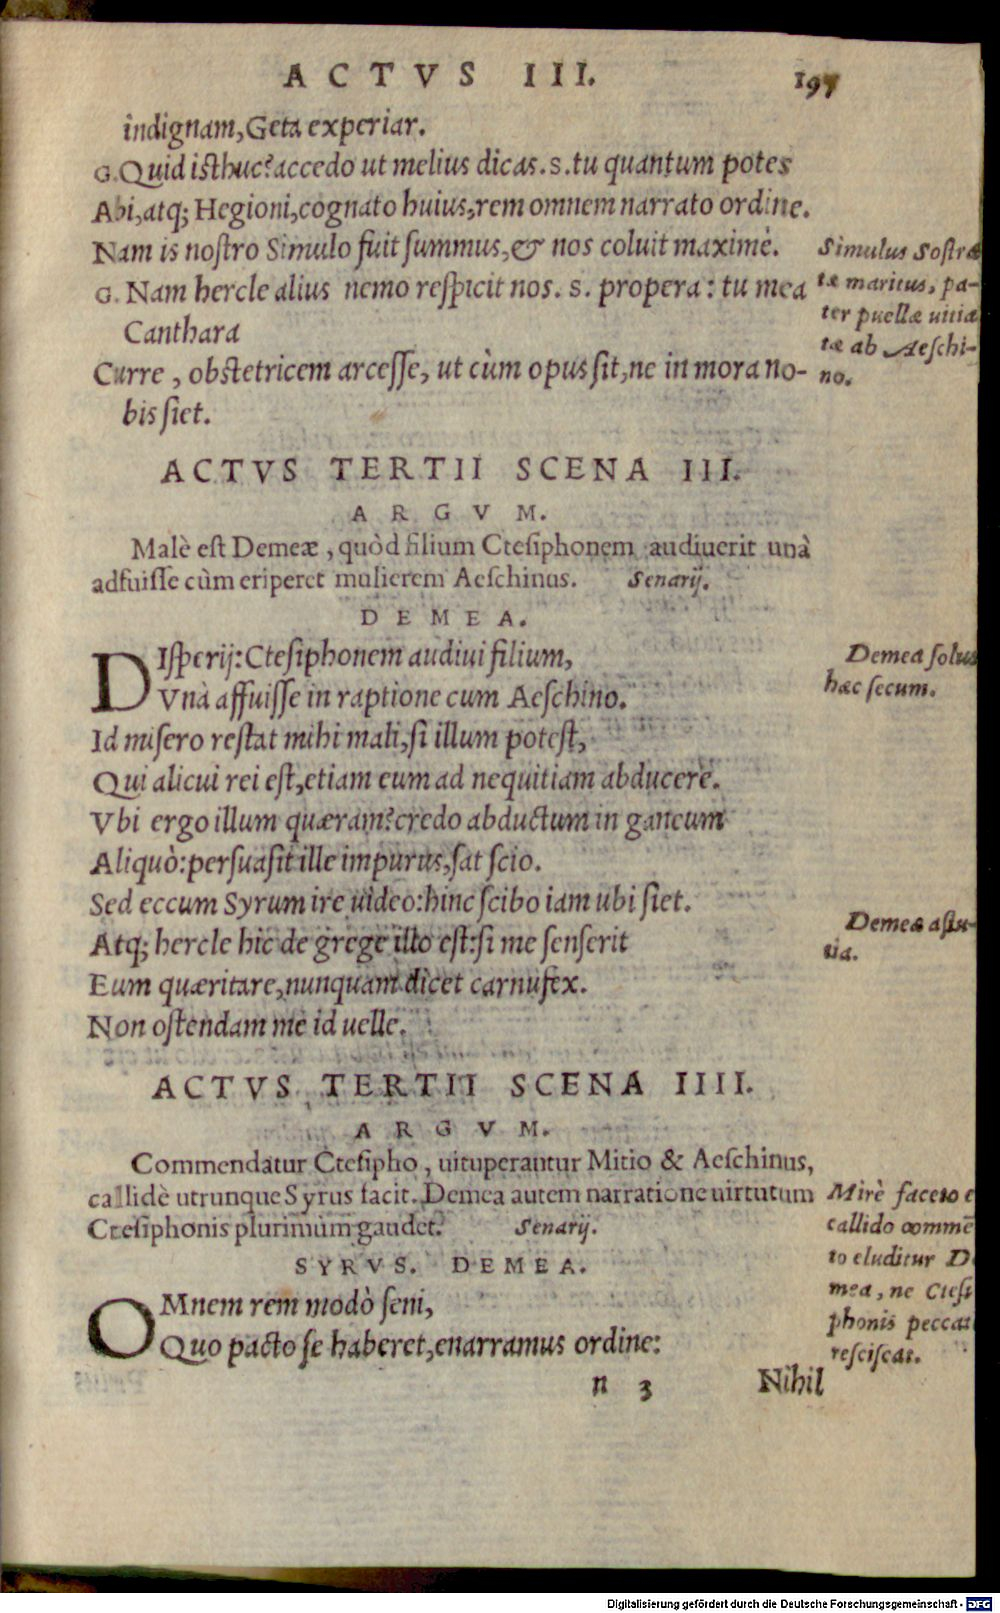 ACTVS III. 197
indignam, Geta experiar.
G. Quid isthuc? accedo ut melius dicas. S. tu quantum potes
Abi, atq; Hegioni, cognato huius, rem omnem narrato ordine.
Nam is noſtro Simulo fuit ſummus, & nos coluit maximè.
G. Nam hercle alius nemo reſpicit nos. S. propera: tu mea
Canthara
Curre, obſtetricem arceſſe, ut cùm opus ſit, ne in mora no-
bis ſiet.
Simulus Soſtra
tæ maritus, pa-
ter puellæ uitia
tæ ab Aeſchi-
no.
ACTVS TERTII SCENA III.
ARGVM.
Malè eſt Demeæ, quòd filium Cteſiphonem audiuerit unà
adfuiſſe cùm eriperet mulierem Aeſchinus. Senarij.
DEMEA.
DIſperij: Cteſiphonem audiui filium,
Vnà affuiſſe in raptione cum Aeſchino.
Id miſero reſtat mihi mali, ſi illum poteſt,
Qui alicui rei eſt, etiam eum ad nequitiam abducere.
Vbi ergo illum quæram? credo abductum in ganeum
Aliquò: perſuaſit ille impurus, ſat ſcio.
Sed eccum Syrum ire uideo: hinc ſcibo iam ubi ſiet.
Atq; hercle hic de grege illo eſt: ſi me ſenſerit
Eum quæritare, nunquam dicet carnufex.
Non oſtendam me id uelle.
Demea ſolus
hæc ſecum.
Demeæ aſtu-
tia.
ACTVS TERTII SCENA IIII.
ARGVM.
Commendatur Cteſipho, uituperantur Mitio & Aeſchinus,
callidè utrunque Syrus facit. Demea autem narratione uirtutum
Cteſiphonis plurimùm gaudet. Senarij.
SYRVS. DEMEA.
OMnem rem modò ſeni,
Quo pacto ſe haberet, enarramus ordine:
Mirè faceto e
callido commē
to eluditur D
mea, ne Cteſi
phonis peccat
reſciſcat.
n 3 Nihil
Digitalisierung gefördert durch die Deutsche Forschungsgemeinschaft - DFG